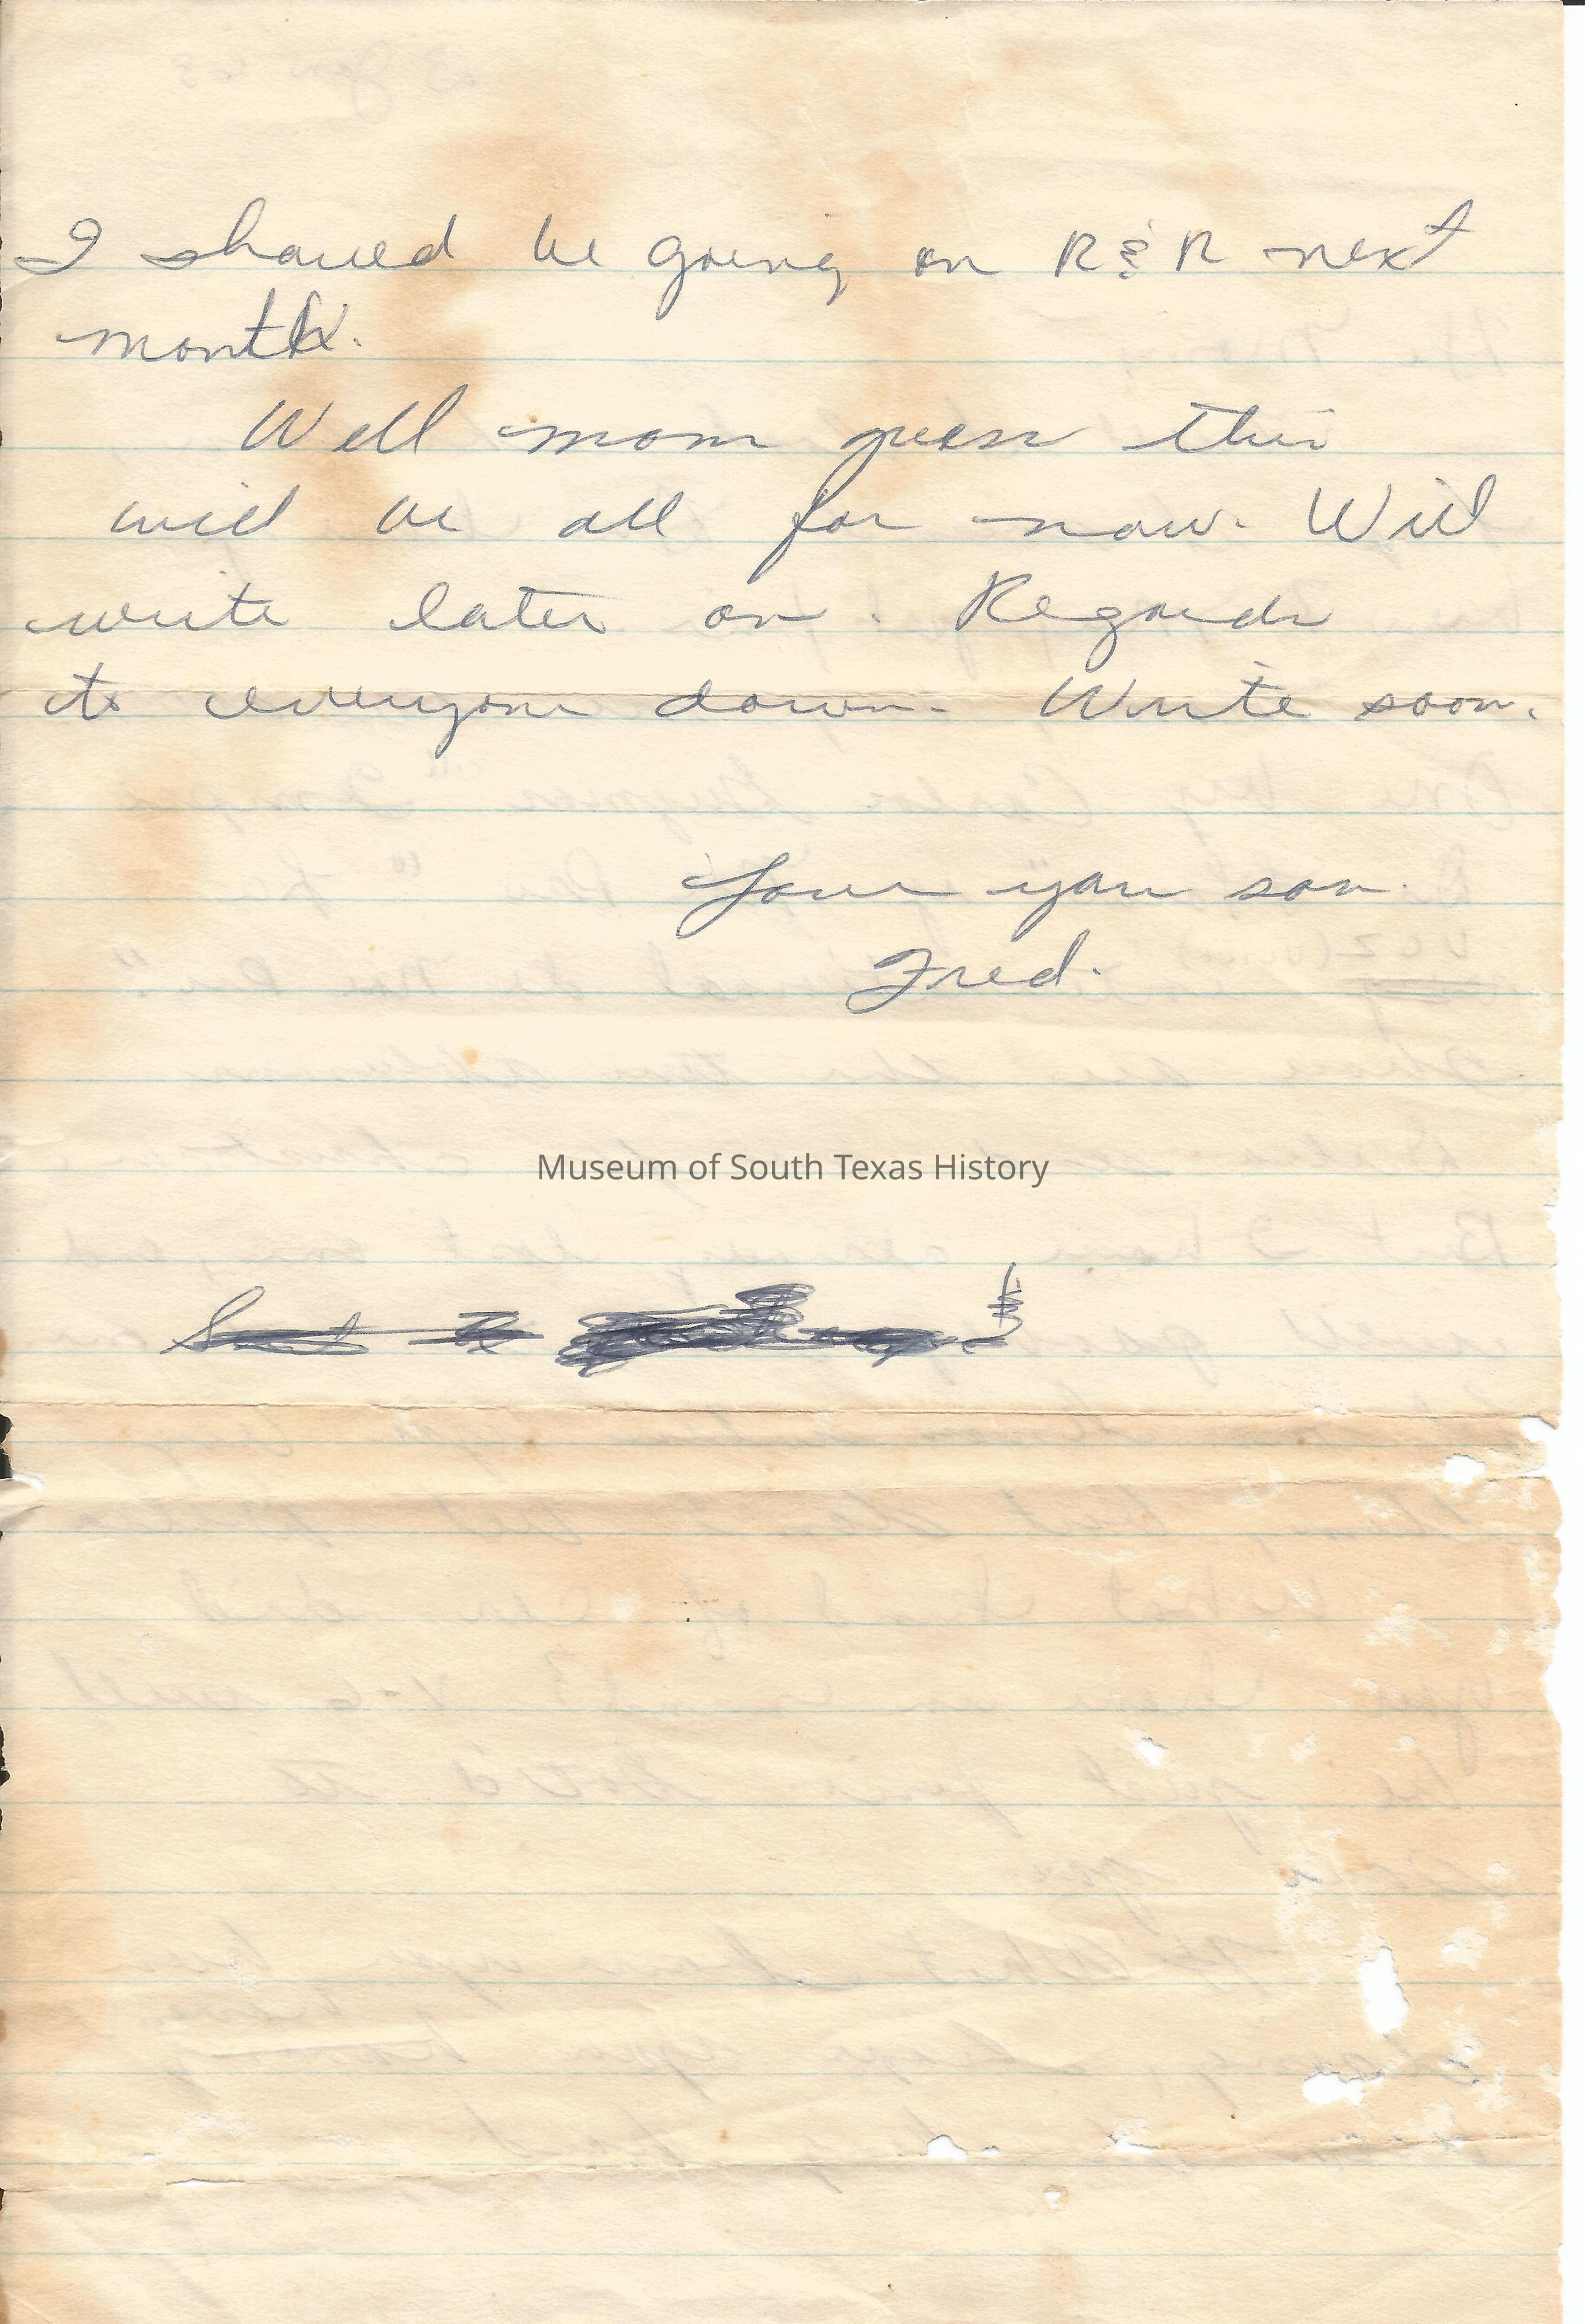 I should be going on R & R next
month.
Well mom guess this
will be all for now. Will
write later on. Regards
to everyone down. Write soon.
Love you son.
Fred.
Museum of South Texas History